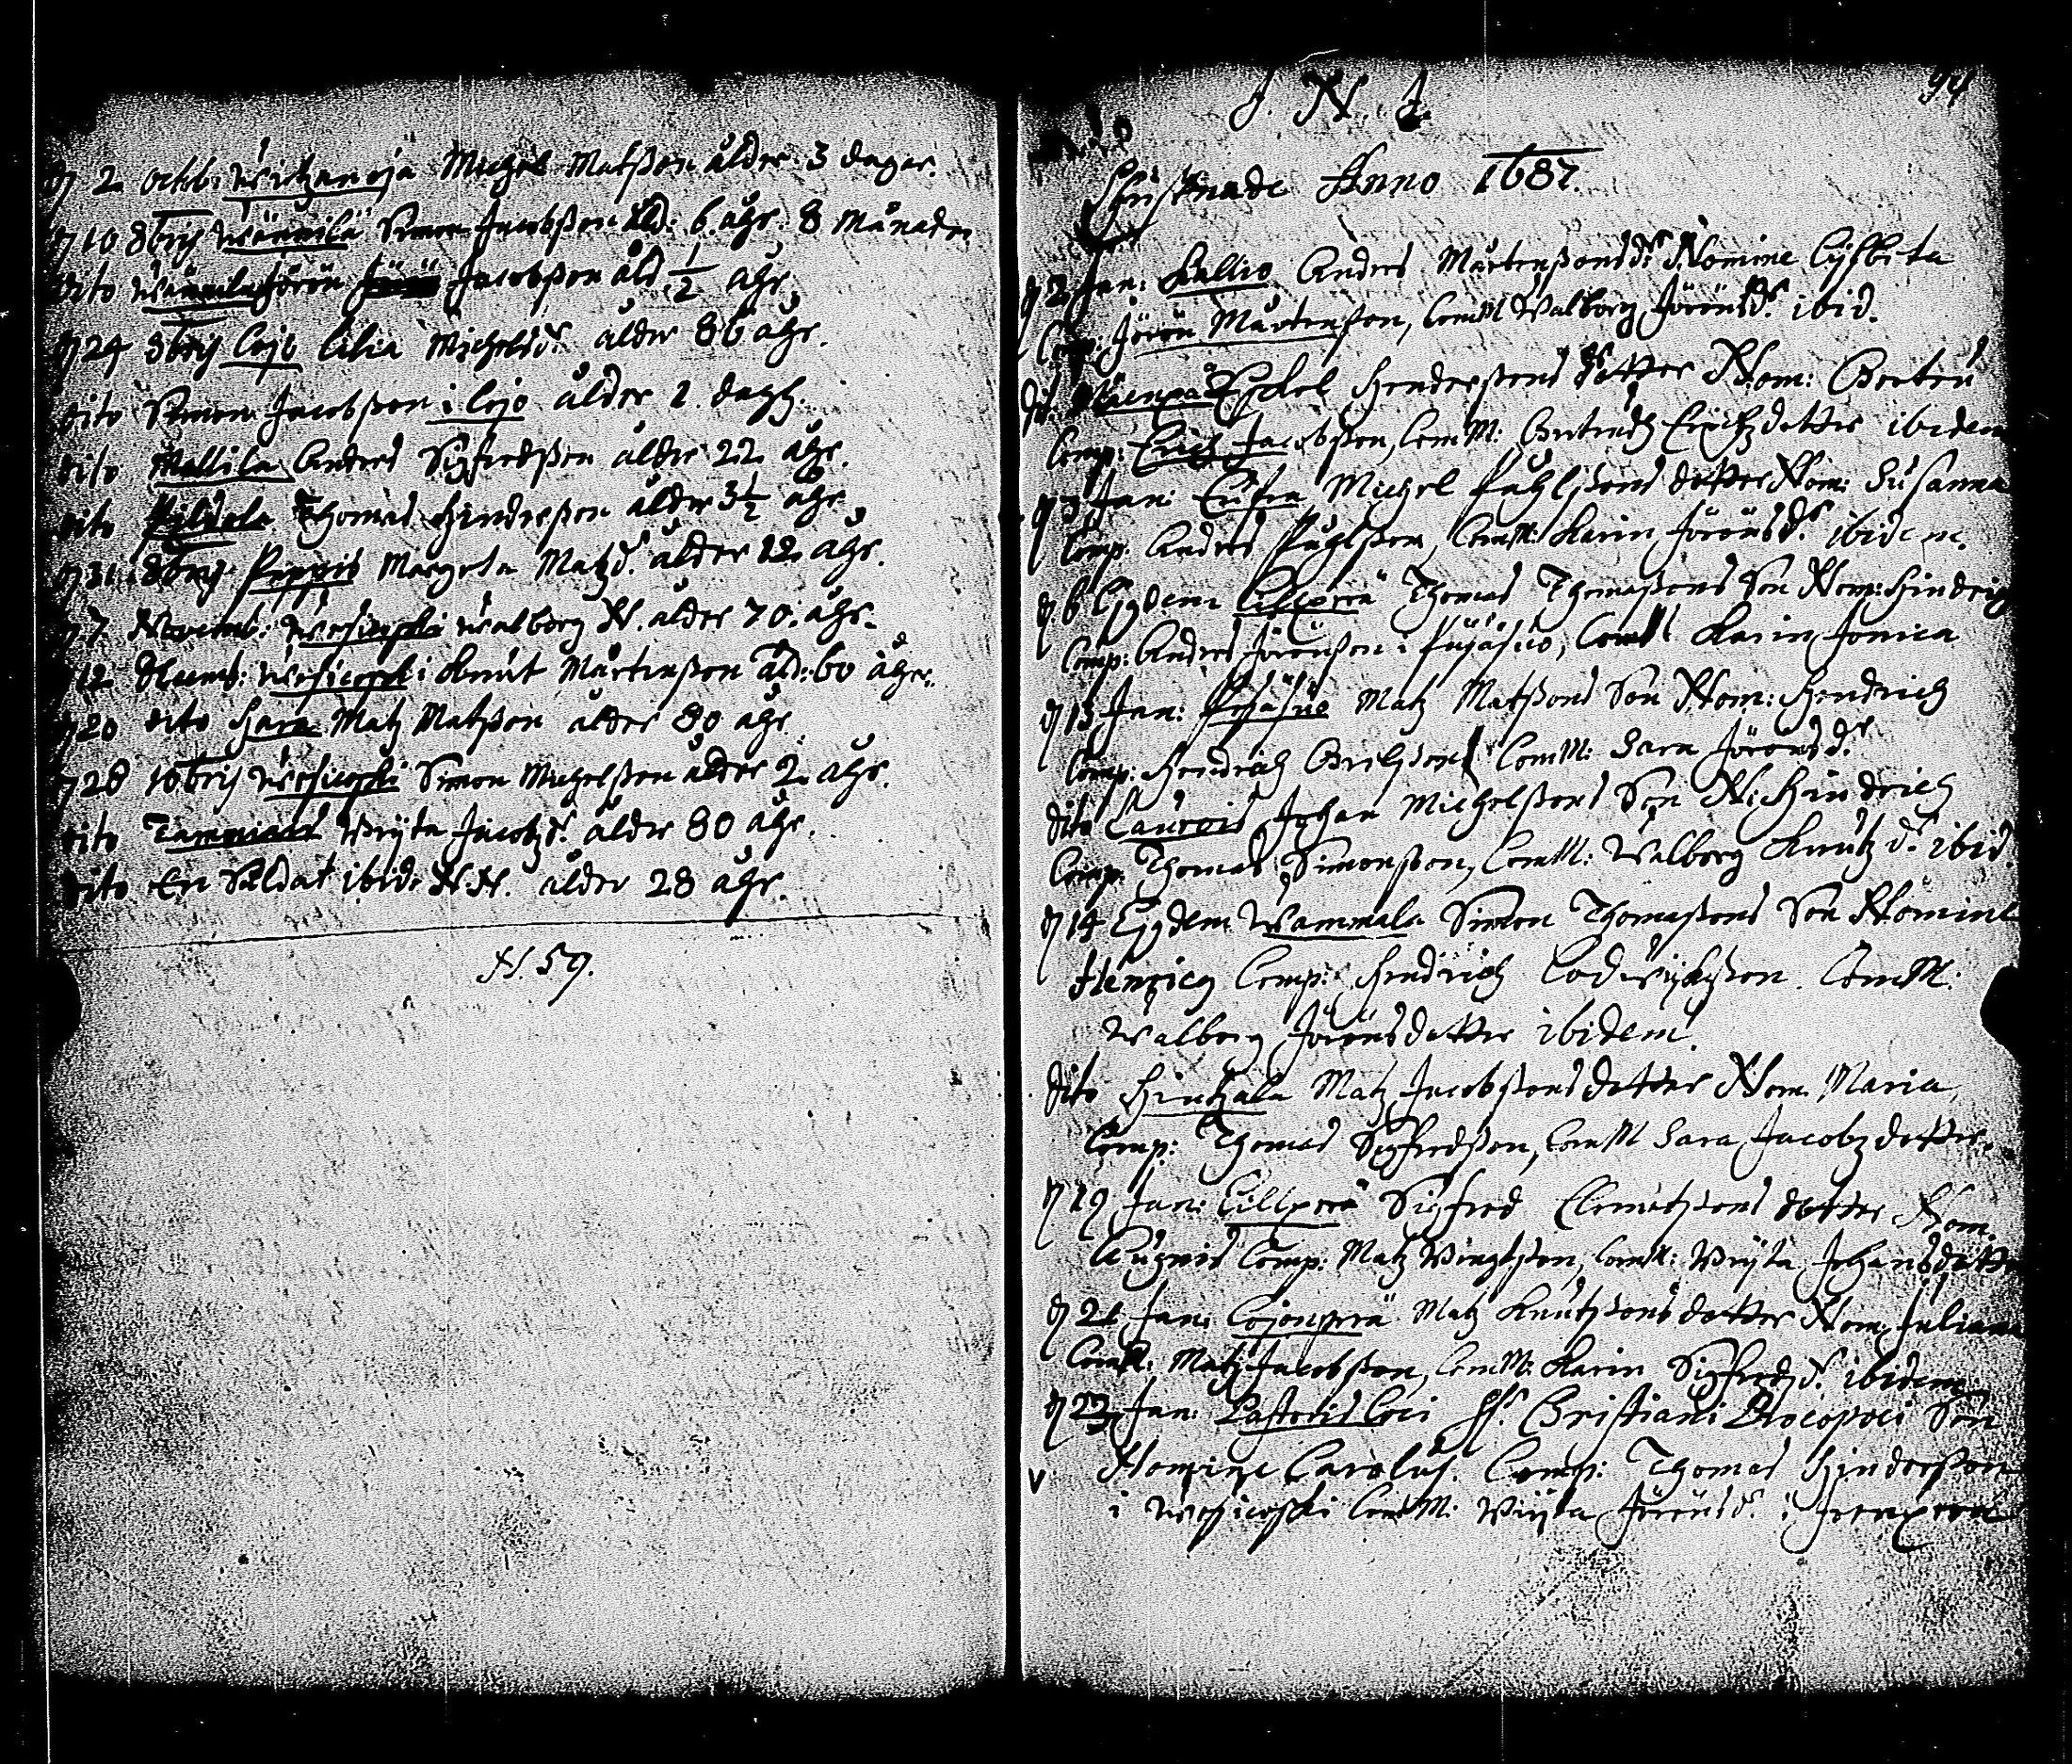 D 2 octob: Witzanoja Michel Matßon ålder 3 dagar.
D 10 8bris Wännilä Simon Jacobßon åld: 6. åhr. 8 månader
dito Wännilä Jörän Jacobßon åld. 1/2 åhr.
D 24 8bris Cojo Cilia Michelsd. ålder 86 åhr.
dito Simon Jacobßon i Cojo ålder 1. dagh.
dito Mallila Anders Sigfredßon ålder 22 åhr.
dito Thomas Hindersson ålder 3 1/2 åhr
D 31. 8bris Pappis Margeta Matzd. ålder 12. åhr.
D 7. Novemb: Wesicoski Walborg N. ålder 70. åhr.
D 12 Novemb: Wesicoski Knut Mårtenßon åld: 60 åhr.
D 20 dito Hara Matz Matßon ålder 80 åhr.
D 28 10bris Wesicoski Simon Michelßon ålder 2. åhr.
dito Tammiais Wryta Jacobzd. ålder 80 åhr.
dito En Soldat ibid. N.N. ålder 28 åhr.
N. 59.
94
J. N. J.
Christnade Anno 1687.
D 2 Jan: Kallio Anders Mårtenßons dr Nomine Lijsbeta
Comp: Jörän Mårtenßon, ComM Walborg Jöransdr. ibid.
Dit. Eskel Hendersons dotter Nom:
Comp: Erich Jacobsson, ComM: Gertrudh Erichzdotter ibidem
D 3 Jan: Eura Michel Påhlßons dotter Nom: Susanna
Comp: Anders Påhlßon, ComM: Karin Jöransdr. ibidem.
D. 6 Ejusdem Cillperä Thomas Thomaßons Son Nom: Hindrich
Comp: Anders Jöranßon i Pajasuo, ComM Karin Jonica
D 13 Jan: Pajasuo Matz Matßons Son Nom: Hendrich
Comp: Hendrich ComM: Sara Jöransdr
dito Laurois Johan Michelßons Son N. Hindrich
Comp: Thomas Simonßon, ComM: Walborg Knutzd. ibid.
D 14 Ejusdem Wammala Simon Thomaßons Son Nomine
Henricq Comp: Hendrich Lodwichßon. ComM:
Walborg Jöransdotter ibidem
dito Hintzala Matz Jacobßons dotter Nom. Maria,
Comp: Thomas Sigfredßon, ComM Sara Jacobzdotter.
D 19 Jan: Cillperä Sigfred Clemetßons dotter Nom
Augnis Comp: Matz ComM: Wryta Johansdotter
D 21 Jan: Cojonperä Matz Knutßons dotter Nom: Juliana
ComM: Matz Jacobßon, ComM: Karin Sigfredzd. ibidem
D 23 Jan: Pastoris Loci Hr. Christiani Procopoei Son
Nomine Carolus. Comp: Thomas Hindersson
i Wesicoski ComM: Wryta Jöransd. i